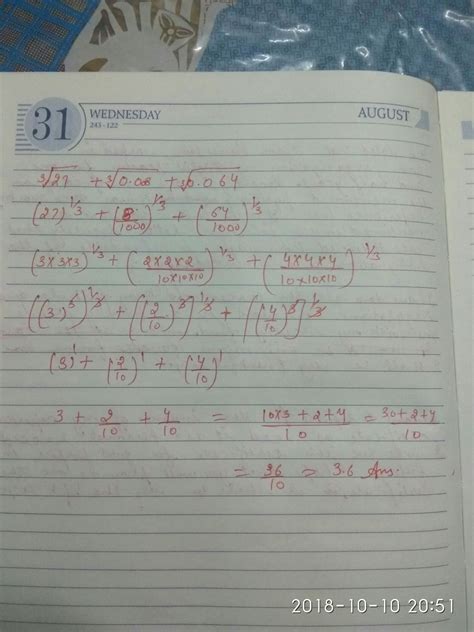 31 WEDNESDAY AUGUST
243-122
∛27 + ∛0.008 + ∛0.064
(27)^1/3 + (8/1000)^1/3 + (64/1000)^1/3
(3×3×3)^1/3 + (2×2×2/10×10×10)^1/3 + (4×4×4/10×10×10)^1/3
((3)^3)^1/3 + [(2/10)^3]^1/3 + [(4/10)^3]^1/3
(3)^1 + (2/10)^1 + (4/10)^1
3 + 2/10 + 4/10 = 10×3+2+4/10 = 30+2+4/10
= 36/10 = 3.6 Ans.
2018-10-10 20:51